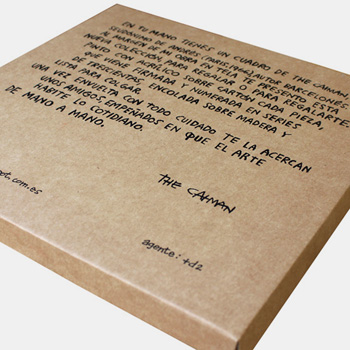 EN TU MANO TIENES UN CUADRO DE THE CAIMAN,
SEUDÓNIMO DE ANDRÉS (PARÍS, 1966), AUTOR BARCELONÉS
AL MARGEN DE LA OBRA EN TELA TE PRESENTO ESTA
NUEVA COLECCIÓN, PARA REGALAR O PARA REGALARTE.
PINTO CON ACRÍLICO SOBRE CARTÓN CADA PIEZA,
QUE VIENE FIRMADA Y NUMERADA EN SERIES
DE TRESCIENTAS ENCOLADA SOBRE MADERA Y
LISTA PARA COLGAR.
UNA VEZ ENVUELTA CON TODO CUIDADO TE LA ACERCAN
UNOS AMIGOS, EMPEÑADOS EN QUE EL ARTE
HABITE LO COTIDIANO.
DE MANO A MANO.
THE CAIMAN
.com.es
agente: td2